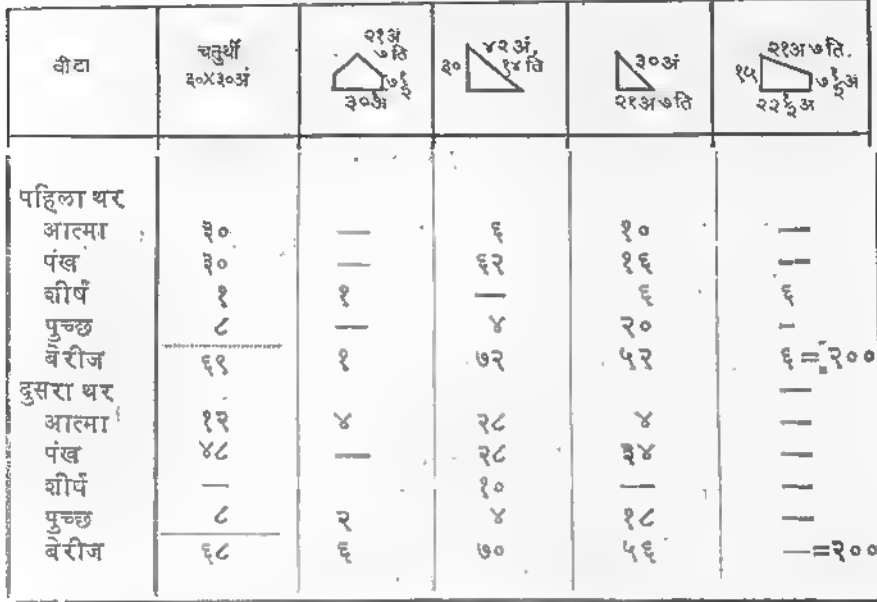 वीटा चतुर्थी ३०X३०अं २१अं ७ ति ७ १/२ ३०अं ३० ४२ अं, १४ ति ३०अं २१अ ७ ति १५ २१अ ७ ति. ७ १/२ अं २२ १/२ अ
पहिला थर
आत्मा ३० — ६ १० —
पंख ३० — ६२ १६ —
शीर्ष १ १ — ६ ६
पुच्छ ८ — ४ २० -
बेरीज ६९ १ ७२ ५२ ६ = २००
दुसरा थर —
आत्मा १२ ४ २८ ४ —
पंख ४८ — २८ ३४ —
शीर्ष — १० — —
पुच्छ ८ २ ४ १८ —
बेरीज ६८ ६ ७० ५६ —=२००